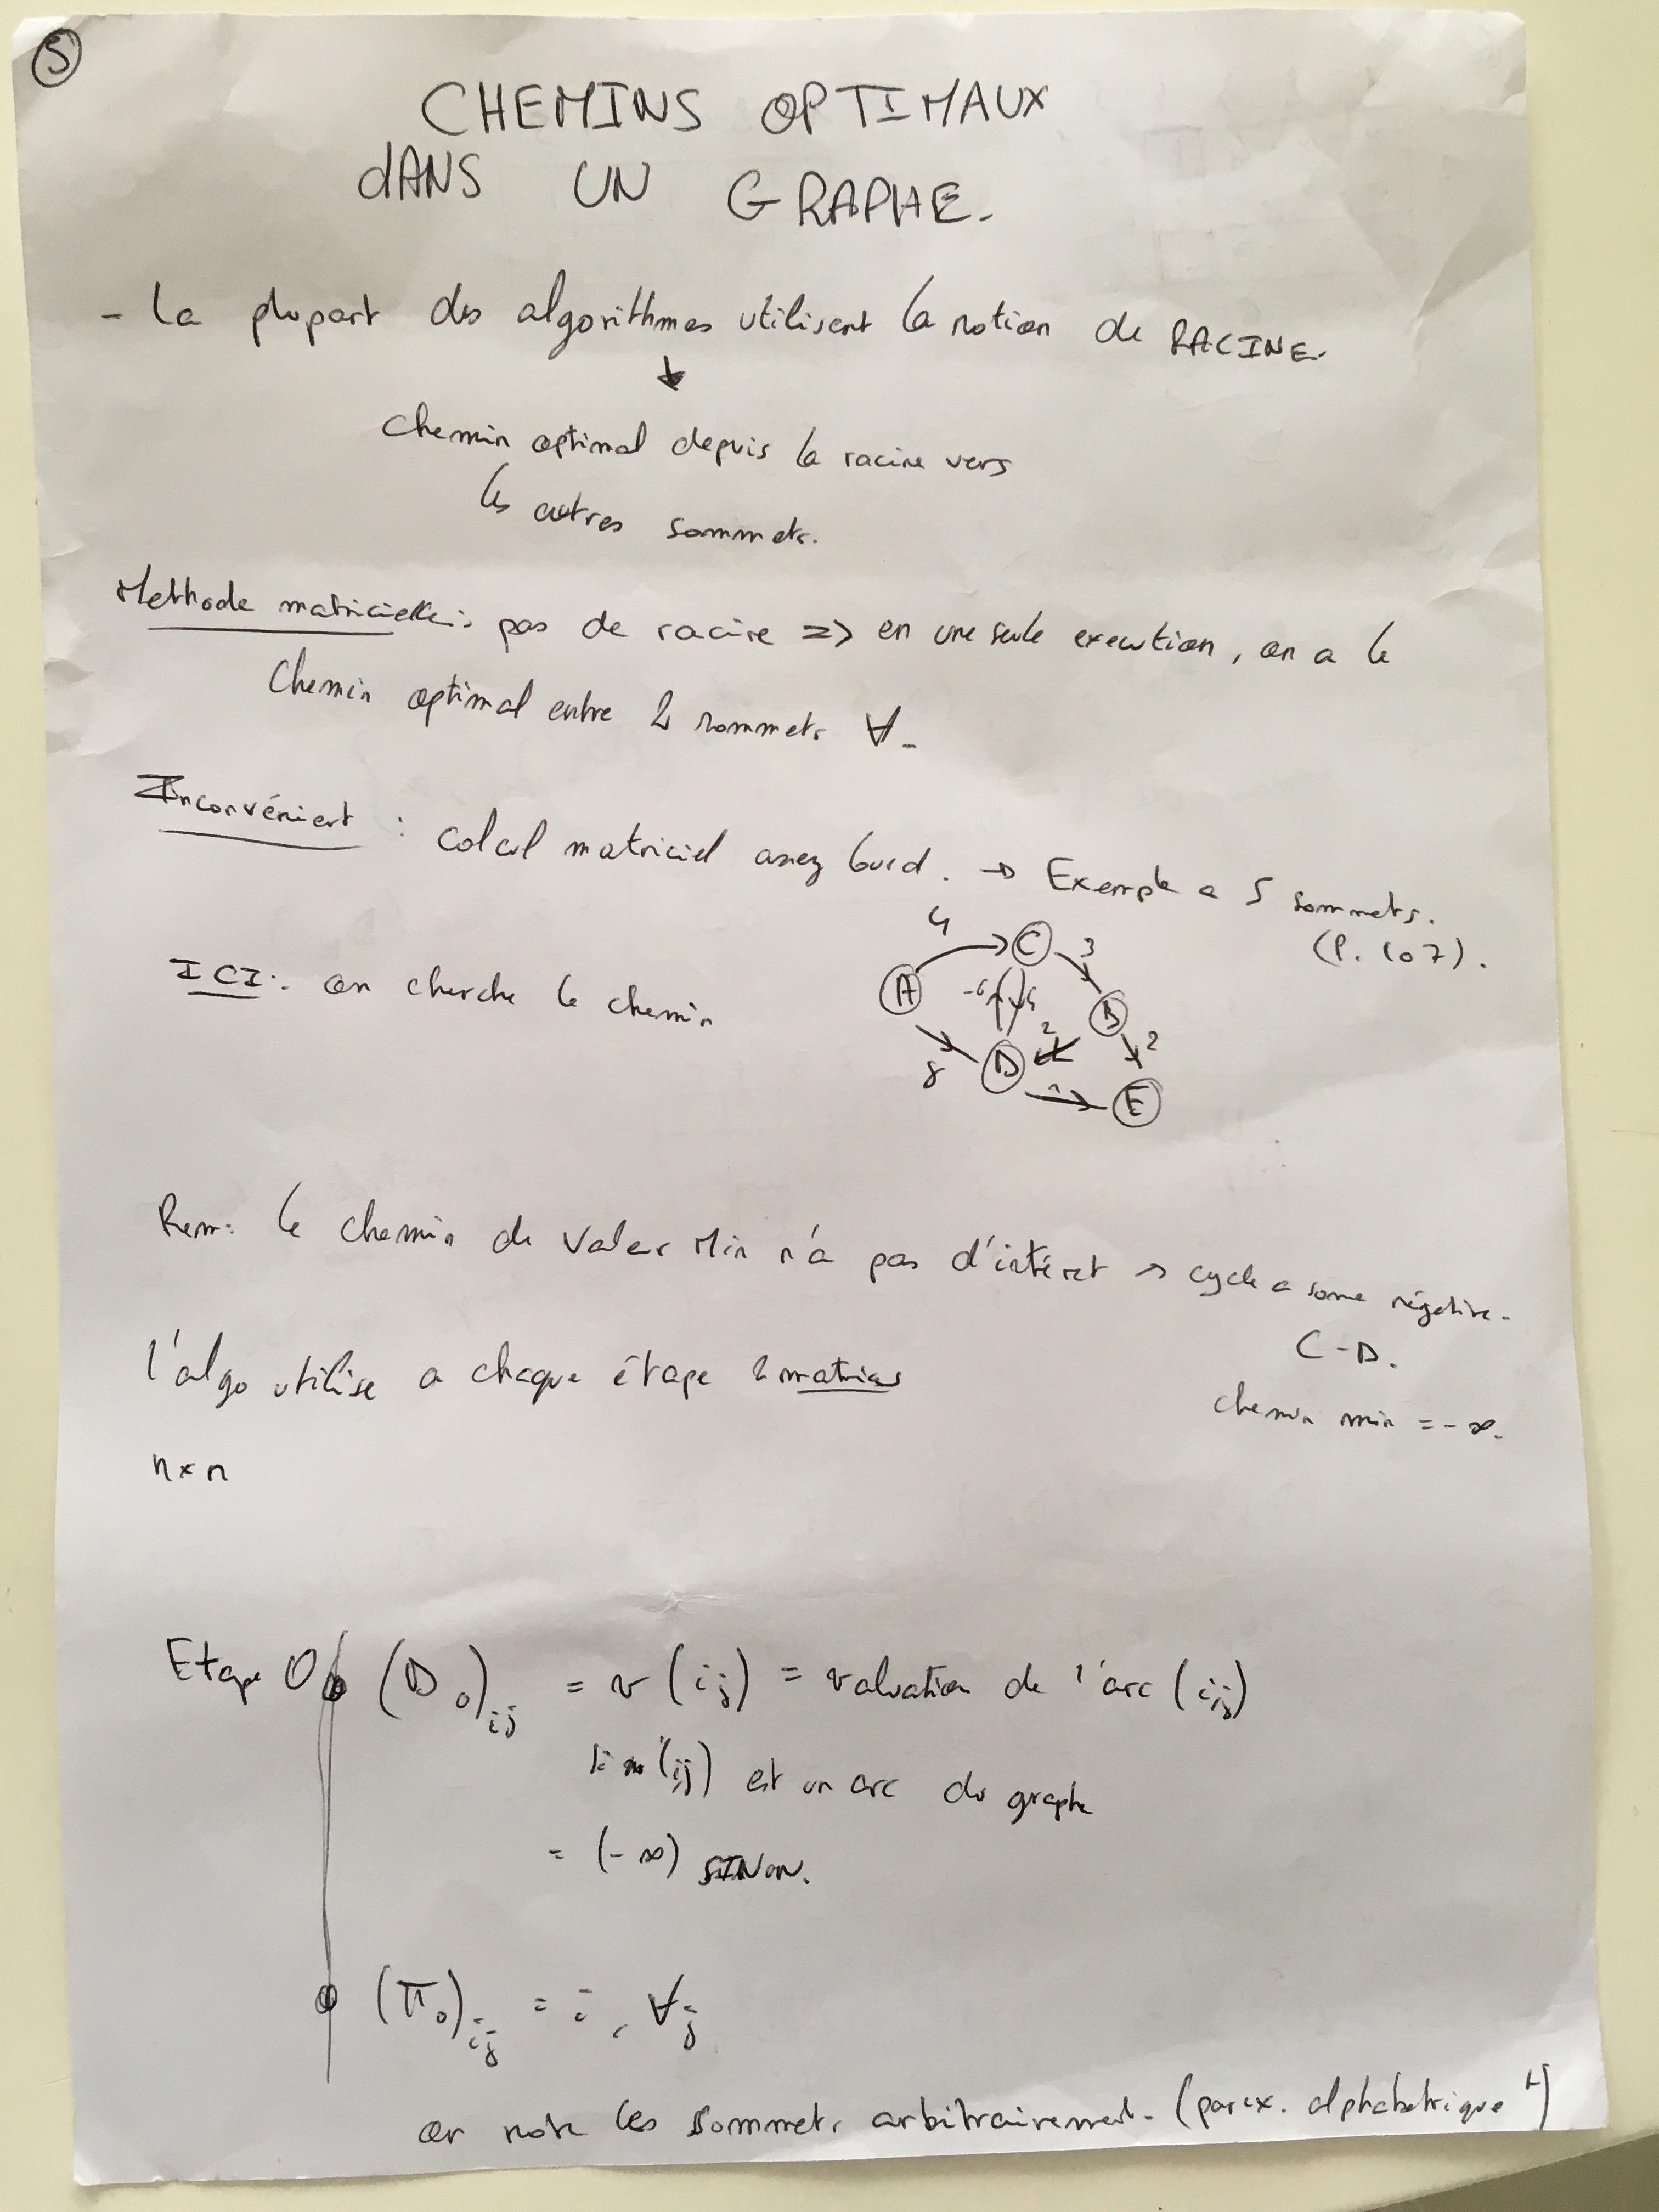 5
CHEMINS OPTIMAUX
dANS UN GRAPHE.
- La plupart des algorithmes utilisent la notion de RACINE.
↓
chemin optimal depuis la racine vers
les autres sommets.
Methode matricielle : pas de racine => en une seule execution, on a le
chemin optimal entre 2 sommets ∀.
Inconvénient : calcul matriciel assez lourd. → Exemple a 5 sommets.
(P. 107).
ICI : on cherche le chemin
4 C 3
A -6 5 B
8 D 2 2
1 E
Rem : le chemin de valeur Min n'a pas d'intéret → cycle a somme négative.
C-D.
l'algo utilise a chaque étape 2 matrices
chemin min = -∞.
n×n
Etape 0 (D₀)ij = v(ij) = valuation de l'arc (ij)
(ij) est un arc du graphe
= (-∞) SINON.
(π₀)ij = i, ∀j
on note les sommets arbitrairement. (par ex. alphabetrique t)